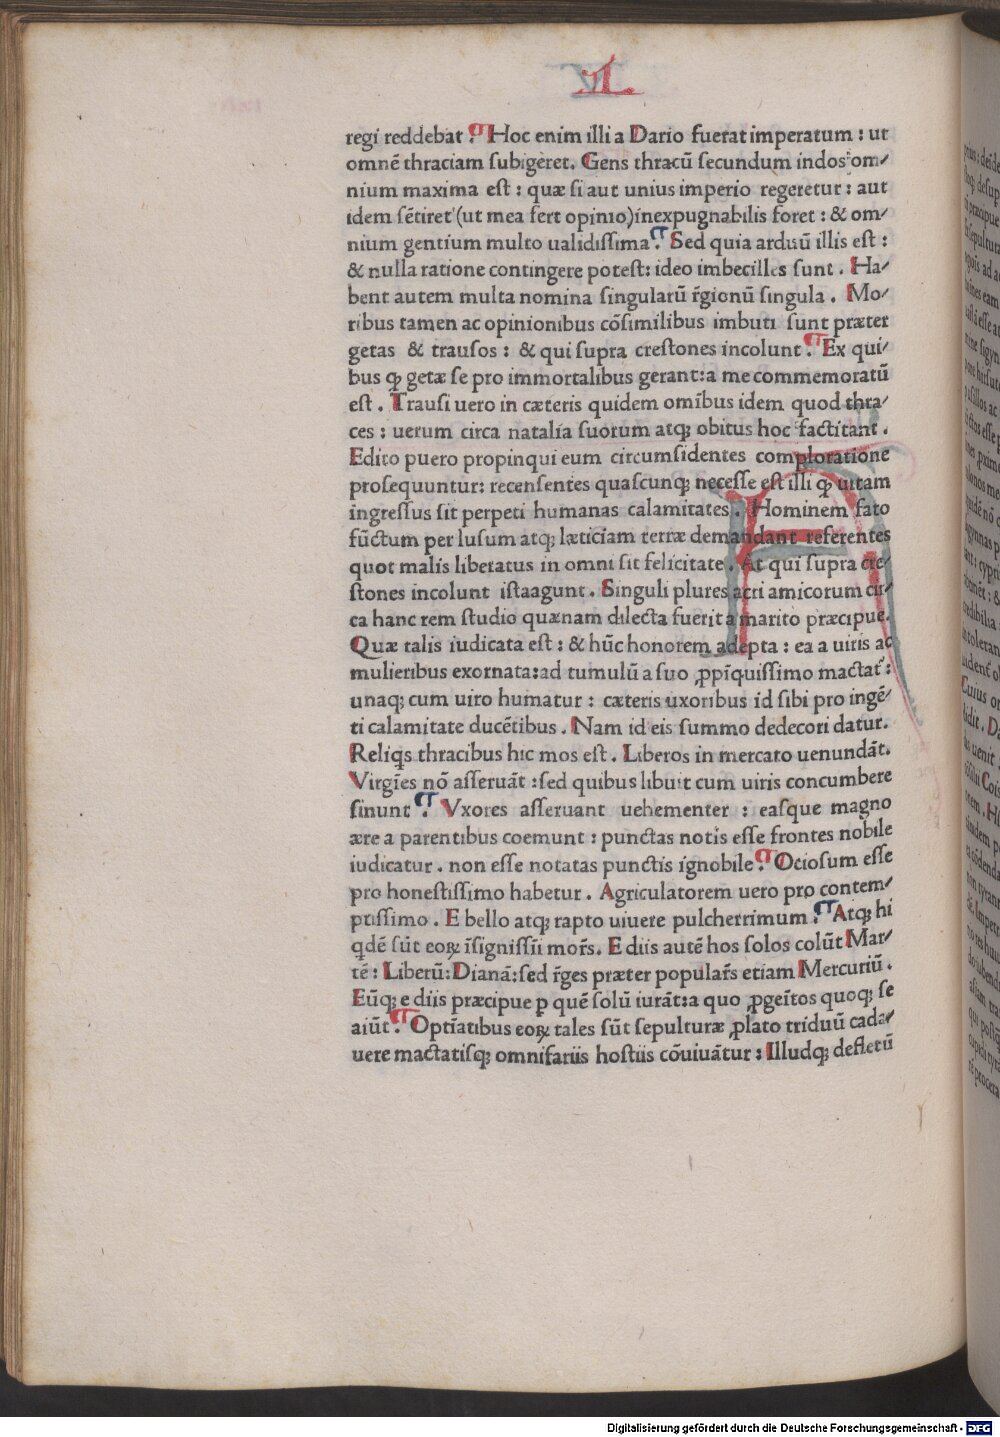 L
regi reddebat . Hoc enim illi a Dario fuerat imperatum : ut
omnē thraciam subigeret. Gens thracū secundum indos om/
nium maxima est : quæ si aut unius imperio regeretur : aut
idem sētiret (ut mea fert opinio) inexpugnabilis foret : & om/
nium gentium multo ualidissima . Sed quia arduū illis est :
& nulla ratione contingere potest: ideo imbecilles sunt . Ha/
bent autem multa nomina singularū r̄gionū singula . Mo/
ribus tamen ac opinionibus cōsimilibus imbuti sunt præter
getas & trausos : & qui supra crestones incolunt . Ex qui/
bus ꝙ getæ se pro immortalibus gerant: a me commemoratū
est . Trausi uero in cæteris quidem omībus idem quod thra/
ces : uerum circa natalia suorum atq; obitus hoc factitant .
Edito puero propinqui eum circumsidentes comploratione
prosequuntur: recensentes quascunq; necesse est illi ꝙ uitam
ingressus sit perpeti humanas calamitates . Hominem fato
fūctum per lusum atq; læticiam terræ demandant referentes
quot malis liberatus in omni sit felicitate . At qui supra cre/
stones incolunt ista agunt . Singuli plures acri amicorum cir/
ca hanc rem studio quænam dilecta fuerit a marito præcipue.
Quæ talis iudicata est : & hūc honorem adepta : ea a uiris ac
mulieribus exornata: ad tumulū a suo ꝓpīquissimo mactat̄ :
unaq; cum uiro humatur : cæteris uxoribus id sibi pro ingē/
ti calamitate ducētibus . Nam id eis summo dedecori datur.
Reliq̄s thracibus hic mos est . Liberos in mercato uenundāt.
Virgīes nō asseruāt : sed quibus libuit cum uiris concumbere
sinunt . Vxores asseruant uehementer : easque magno
ære a parentibus coemunt : punctas notis esse frontes nobile
iudicatur . non esse notatas punctis ignobile . Ociosum esse
pro honestissimo habetur . Agriculatorem uero pro contem/
ptissimo . E bello atq; rapto uiuere pulcherrimum . Atq; hi
q̄dē sūt eoꝝ īsignissīi mor̄s. E diis autē hos solos colūt Mar/
tē : Liberū: Dianā: sed r̄ges præter popular̄s etiam Mercuriū .
Eūq; e diis præcipue ꝑ quē solū iurāt: a quo ꝓgeītos quoq; se
aiūt . Optīatibus eoꝝ tales sūt sepulturæ ꝓlato triduū cada/
uere mactatisq; omnifariis hostiis cōuiuātur : Illudq; defletū
Digitalisierung gefördert durch die Deutsche Forschungsgemeinschaft - DFG